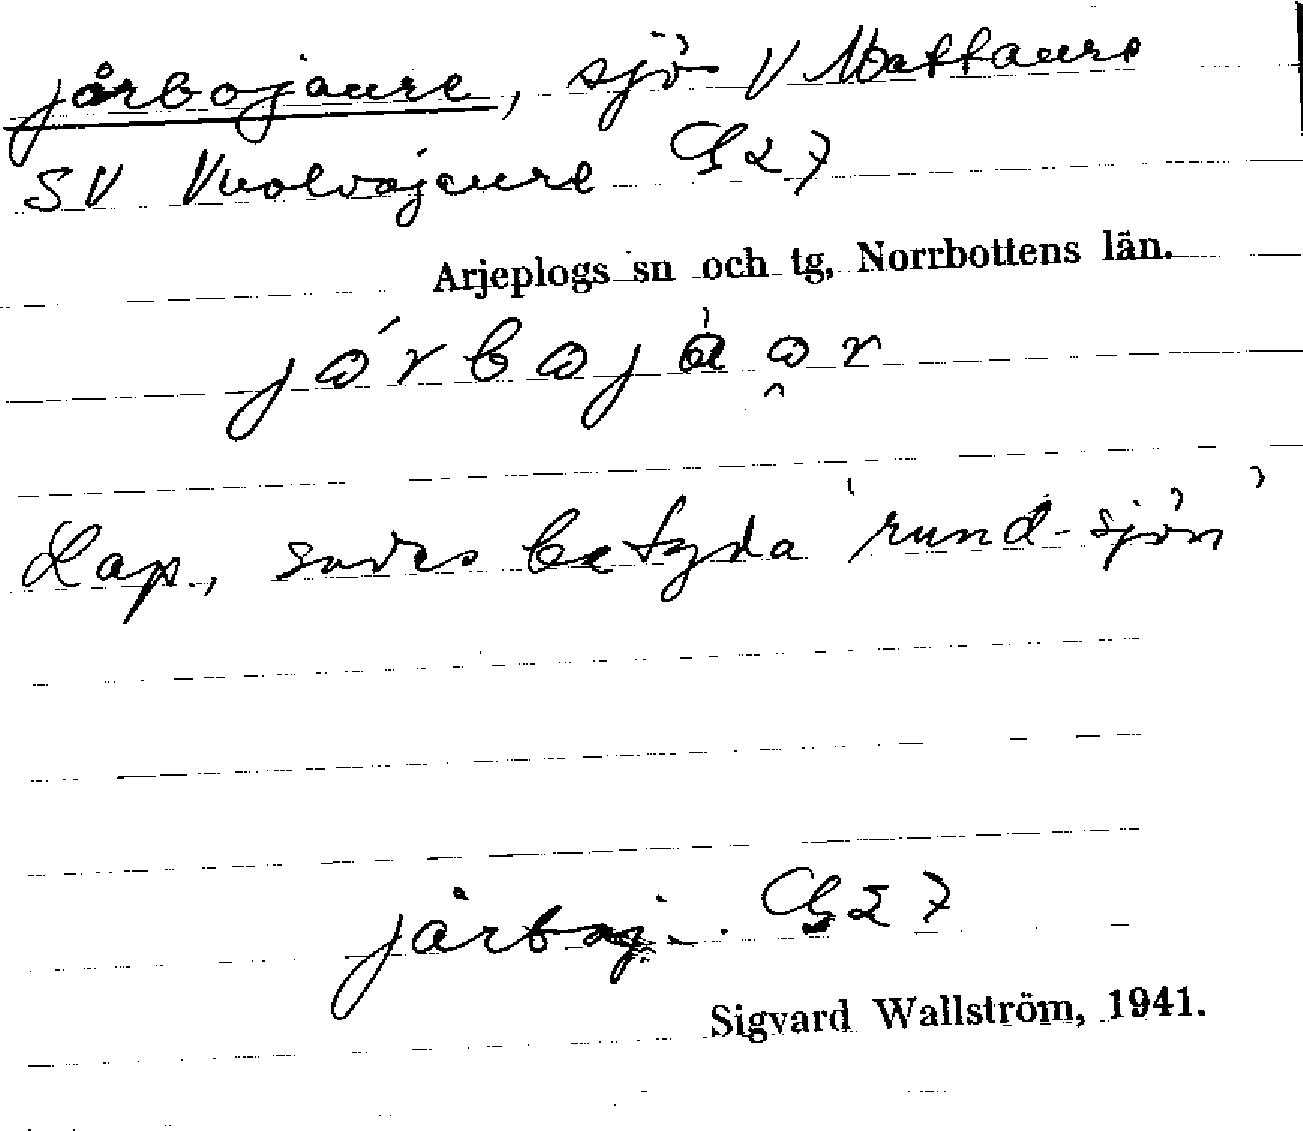 jårbojaure, sjö V Mattaure
SV Vuolvojaure G27
Arjeplogs sn och tg, Norrbottens län.
Lap., sades betyda 'rund-sjön'
jårboj. G27
Sigvard Wallström, 1941.